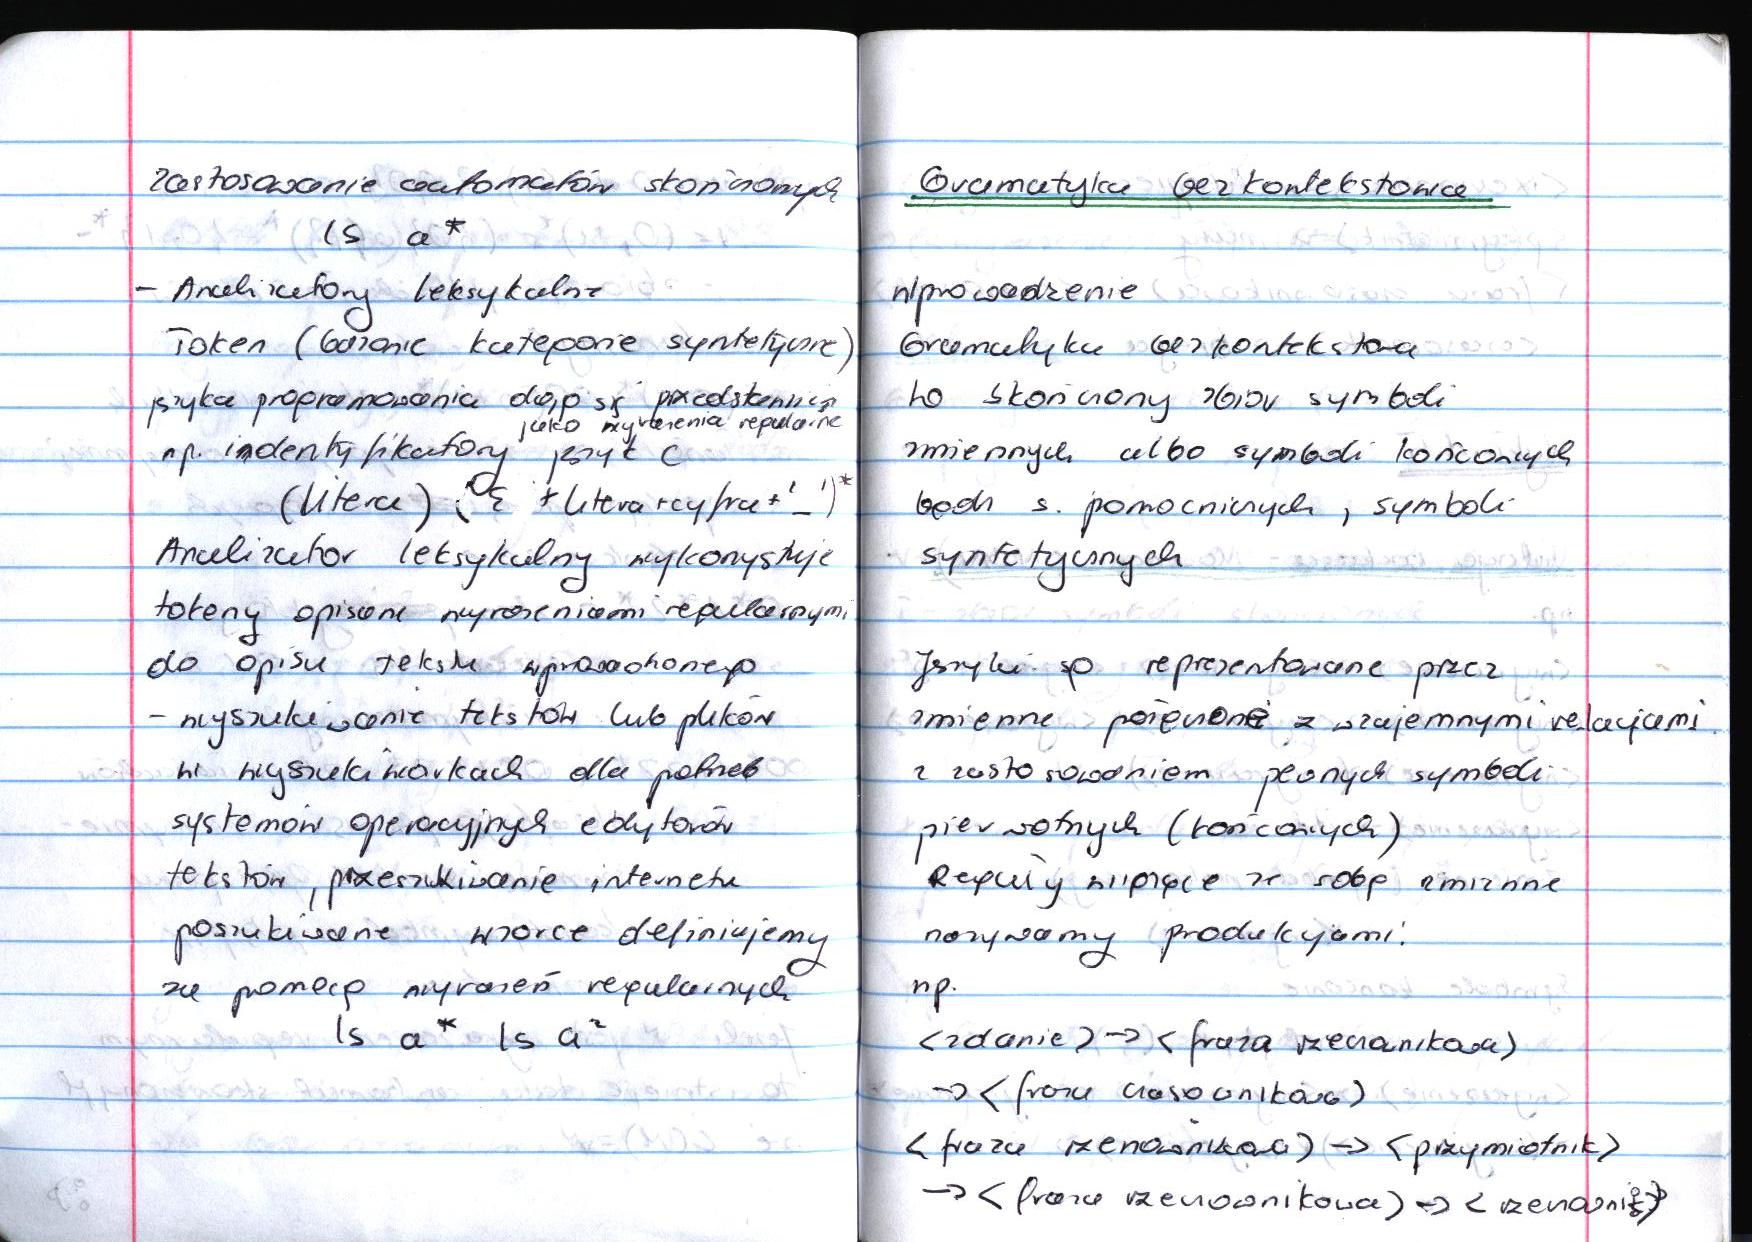 zastosowanie automatów skończonych
ls a*
- Analizatory leksykalne
Token ( kategorie syntetyczne)
języka programowania dają się przedstawić
jako wyrażenia regularne
np. indentyfikatory język C
(litera) (ε + litera + cyfra + '_')*
Analizator leksykalny wykorzystuje
tokeny opisane wyrażeniami regularnymi
do opisu tekstu wprowadzonego
- wyszukiwanie tekstów lub plików
w wyszukiwarkach dla potrzeb
systemów operacyjnych edytorów
tekstów, przeszukiwanie internetu
poszukiwane wzorce definiujemy
za pomocą wyrażeń regularnych
ls a* ls a?
Gramatyka bezkontekstowa
Wprowadzenie
Gramatyka bezkontekstowa
to skończony zbiór symboli
zmiennych albo symboli końcowych
bądź s. pomocniczych, symboli
syntetycznych
Języki są reprezentowane przez
zmienne połączone z wzajemnymi relacjami
z zastosowaniem pewnych symboli
pierwotnych (końcowych)
Reguły wiążące ze sobą zmienne
nazywamy produkcjami:
np.
<zdanie> → <fraza rzeczownikowa>
→ <fraza czasownikowa>
<fraza rzeczownikowa> → <przymiotnik>
→ <fraza rzeczownikowa> → <rzeczownik>